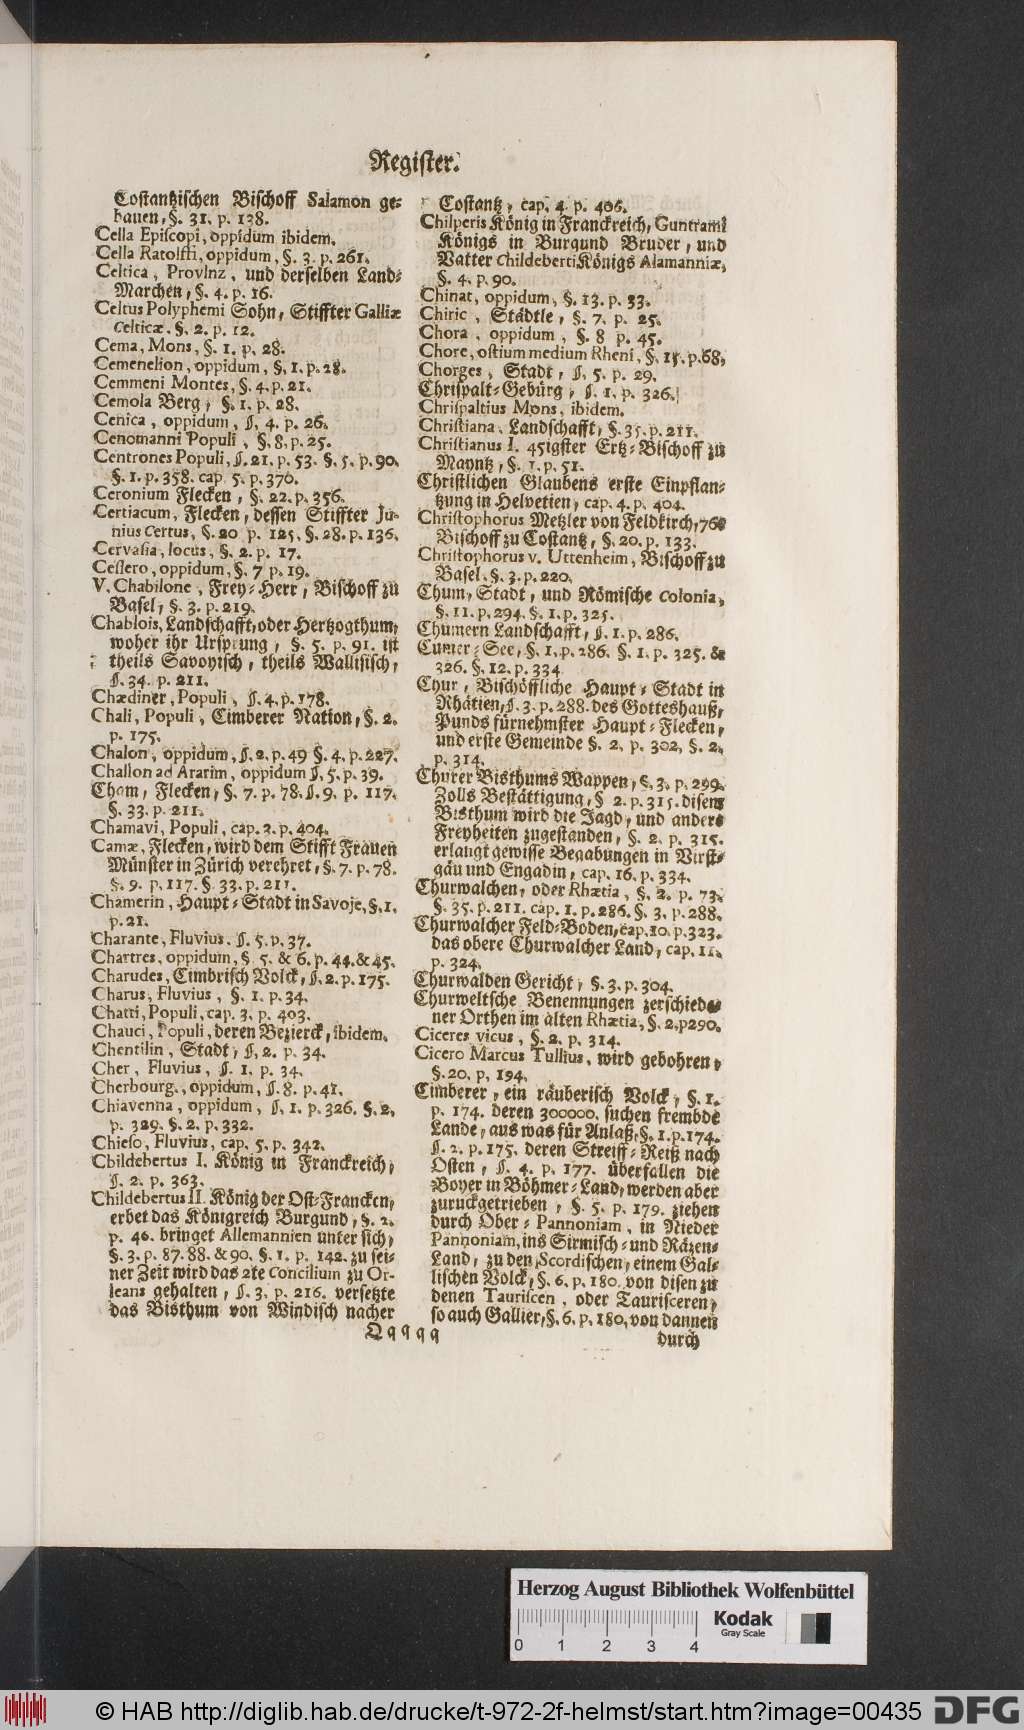 Register.
Costantzischen Bischoff Salamon ge-
bauen, §. 31. p. 138.
Cella Episcopi, oppidum ibidem.
Cella Ratolfii, oppidum, §. 3. p. 261.
Celtica, Provinz, und derselben Land-
Marchen, §. 4. p. 16.
Celtus Polyphemi Sohn, Stiffter Galliæ
Celticæ. §. 2. p. 12.
Cema, Mons, §. 1. p. 28.
Cemenelion, oppidum, §. 1. p. 28.
Cemmeni Montes, §. 4. p. 21.
Cemola Berg, §. 1. p. 28.
Cenica, oppidum, §. 4. p. 26.
Cenomanni Populi, §. 8. p. 25.
Centrones Populi, §. 21. p. 53. §. 5. p. 90.
§. 1. p. 358. cap. 5. p. 370.
Ceronium Flecken, §. 22. p. 356.
Certiacum, Flecken, dessen Stiffter Ju-
nius Certus, §. 20 p. 125. §. 28. p. 136.
Cervasia, locus, §. 2. p. 17.
Cessero, oppidum, §. 7 p. 19.
V. Chabilone, Frey-Herr, Bischoff zu
Basel, §. 3. p. 219.
Chablois, Landschafft, oder Hertzogthum,
woher ihr Ursprung, §. 5. p. 91. ist
theils Savoyisch, theils Wallisisch,
§. 34. p. 211.
Chædiner, Populi, §. 4. p. 178.
Chali, Populi, Cimberer Nation, §. 2.
p. 175.
Chalon, oppidum, §. 2. p. 49 §. 4. p. 227.
Challon ad Ararim, oppidum §. 5. p. 39.
Cham, Flecken, §. 7. p. 78. §. 9. p. 117.
§. 33. p. 211.
Chamavi, Populi, cap. 3. p. 404.
Camæ, Flecken, wird dem Stifft Frauen
Münster in Zürich verehret, §. 7. p. 78.
§. 9. p. 117. §. 33. p. 211.
Chamerin, Haupt-Stadt in Savoje, §. 1.
p. 21.
Charante, Fluvius. §. 5. p. 37.
Chartres, oppidum, §. 5. & 6. p. 44. & 45.
Charudes, Cimbrisch Volck, §. 2. p. 175.
Charus, Fluvius, §. 1. p. 34.
Chatti, Populi, cap. 3. p. 403.
Chauci, Populi, deren Bezierck, ibidem.
Chentilin, Stadt, §. 2. p. 34.
Cher, Fluvius, §. 1. p. 34.
Cherbourg., oppidum, §. 8. p. 41.
Chiavenna, oppidum, §. 1. p. 326. §. 2.
p. 329. §. 2. p. 332.
Chieso, Fluvius, cap. 5. p. 342.
Childebertus I. König in Franckreich,
§. 2. p. 363.
Childebertus II. König der Ost-Francken,
erbet das Königreich Burgund, §. 2.
p. 46. bringet Allemannien unter sich,
§. 3. p. 87. 88. & 90. §. 1. p. 142. zu sei-
ner Zeit wird das 2te Concilium zu Or-
leans gehalten, §. 3. p. 216. versetzte
das Bisthum von Windisch nacher
Costantz, cap. 4. p. 406.
Chilperis König in Franckreich, Guntrami
Königs in Burgund Bruder, und
Vatter Childeberti Königs Alamanniæ,
§. 4. p. 90.
Chinat, oppidum, §. 13. p. 33.
Chiric, Städtle, §. 7. p. 25.
Chora, oppidum, §. 8 p. 45.
Chore, ostium medium Rheni, §. 15. p. 68,
Chorges, Stadt, §. 5. p. 29.
Chrispalt-Gebürg, §. 1. p. 326.
Chrispaltius Mons, ibidem.
Christiana, Landschafft, §. 35. p. 211.
Christianus I. 45igster Ertz-Bischoff zu
Mayntz, §. 1. p. 51.
Christlichen Glaubens erste Einpflan-
tzung in Helvetien, cap. 4. p. 404.
Christophorus Metzler von Feldkirch, 76e
Bischoff zu Costantz, §. 20. p. 133.
Christophorus v. Uttenheim, Bischoff zu
Basel, §. 3. p. 220.
Chum, Stadt, und Römische Colonia,
§. 11. p. 294. §. 1. p. 325.
Chumern Landschafft, §. 1. p. 286.
Cumer-See, §. 1. p. 286. §. 1. p. 325. &
326. §. 12. p. 334
Chur, Bischöffliche Haupt-Stadt in
Rhätien, §. 3. p. 288. des Gotteshauß,
Punds fürnehmster Haupt-Flecken,
und erste Gemeinde §. 2. p. 302, §. 2.
p. 314.
Churer Bisthums Wappen, §. 3. p. 299.
Zolls Bestättigung, § 2. p. 315. disem
Bisthum wird die Jagd, und andere
Freyheiten zugestanden, §. 2. p. 315.
erlangt gewisse Begabungen in Virst-
gäu und Engadin, cap. 16. p. 334.
Churwalchen, oder Rhætia, §. 2. p. 73.
§. 35. p. 211. cap. 1. p. 286. §. 3. p. 288.
Churwalcher Feld-Boden, cap. 10. p. 323.
das obere Churwalcher Land, cap. 11.
p. 324.
Churwalden Gericht, §. 3. p. 304.
Churweltsche Benennungen zerschiede-
ner Orthen im alten Rhætia, §. 2. p290.
Ciceres vicus, §. 2. p. 314.
Cicero Marcus Tullius, wird gebohren,
§. 20. p. 194.
Cimberer, ein räuberisch Volck, §. 1.
p. 174. deren 300000. suchen frembde
Lande, aus was für Anlaß, §. 1. p. 174.
§. 2. p. 175. deren Streiff-Reiß nach
Osten, §. 4. p. 177. überfallen die
Boyer in Böhmer-Land, werden aber
zuruckgetrieben, §. 5. p. 179. ziehen
durch Ober-Pannoniam, in Nieder
Pannoniam, ins Sirmisch-und Räzen-
Land, zu den Scordischen, einem Gal-
lischen Volck, §. 6. p. 180. von disen zu
denen Tauriscen, oder Taurisceren,
so auch Gallier, §. 6. p. 180, von dannen
Qqqqq
durch
Herzog August Bibliothek Wolfenbüttel
Kodak
Gray Scale
0 1 2 3 4
© HAB http://diglib.hab.de/drucke/t-972-2f-helmst/start.htm?image=00435
DFG